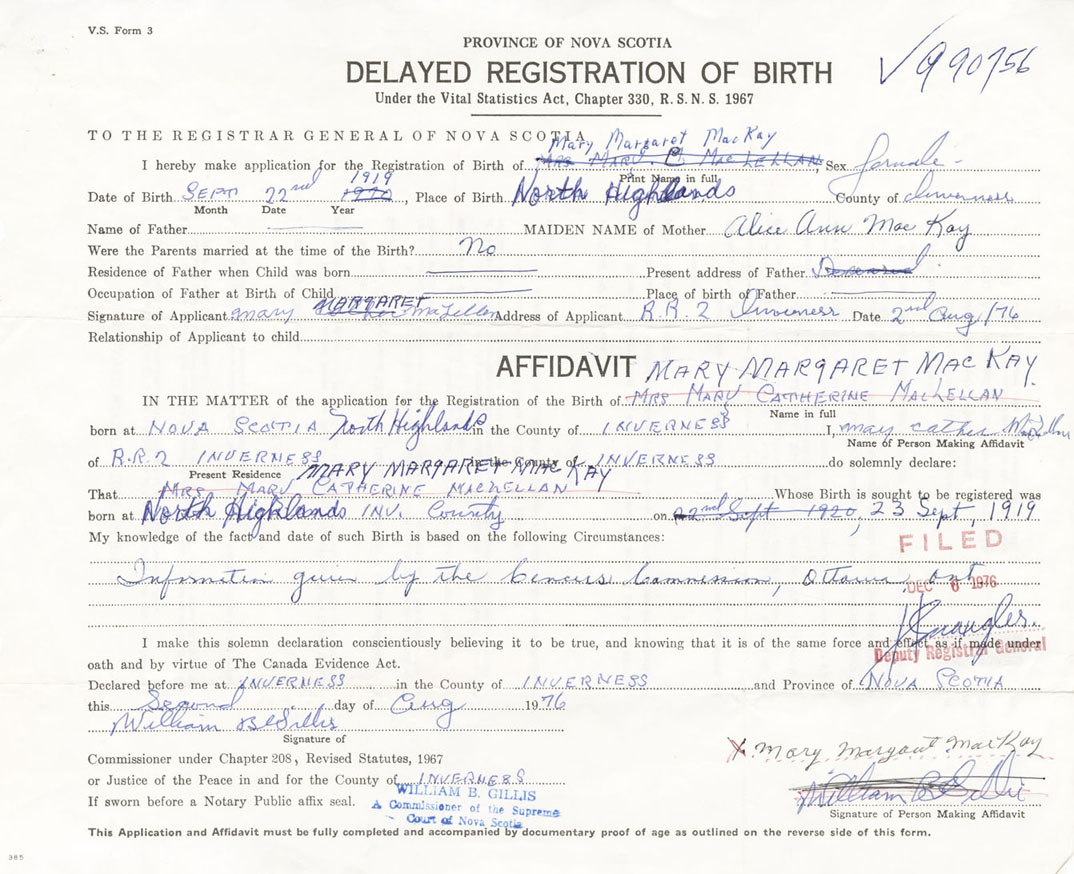 V.S. Form 3
PROVINCE OF NOVA SCOTIA
✓990756
DELAYED REGISTRATION OF BIRTH
Under the Vital Statistics Act, Chapter 330, R.S.N.S. 1967
TO THE REGISTRAR GENERAL OF NOVA SCOTIA
Mary Margaret MacKay
I hereby make application for the Registration of Birth of MRS MARY. C. MACLELLAN, Sex female
Print Name in full
1919
Date of Birth SEPT 22nd 1920, Place of Birth North Highlands County of Inverness
Month Date Year
Name of Father MAIDEN NAME of Mother Alice Ann MacKay
Were the Parents married at the time of the Birth? No
Residence of Father when Child was born Present address of Father Deceased
Occupation of Father at Birth of Child Place of birth of Father
MARGARET
Signature of Applicant Mary MacLellan Address of Applicant R.R.2 Inverness Date 2nd Aug/76
Relationship of Applicant to child
AFFIDAVIT MARY MARGARET MACKAY
IN THE MATTER of the application for the Registration of the Birth of MRS MARY CATHERINE MACLELLAN
Name in full
born at NOVA SCOTIA North Highlands in the County of INVERNESS I, Mary
Name of Person Making Affidavit
of R.R.2 INVERNESS in the County of INVERNESS do solemnly declare:
Present Residence MARY MARGARET MACKAY
That MRS MARY CATHERINE MACLELLAN Whose Birth is sought to be registered was
born at North Highlands INV. County on 22nd Sept 1920, 23 Sept, 1919
My knowledge of the fact and date of such Birth is based on the following Circumstances:
FILED
Information given by the Cencus Commission, Ottawa, Ont
DEC 6 1976
I make this solemn declaration conscientiously believing it to be true, and knowing that it is of the same force and effect as if made under
Deputy Registrar General
oath and by virtue of The Canada Evidence Act.
Declared before me at INVERNESS in the County of INVERNESS and Province of NOVA SCOTIA
this Second day of Aug 1976
William B Gillis
Signature of
Commissioner under Chapter 208, Revised Statutes, 1967
X. Mary Margaret MacKay
or Justice of the Peace in and for the County of INVERNESS
William B Gillis
WILLIAM B. GILLIS
If sworn before a Notary Public affix seal.
A Commissioner of the Supreme
Court of Nova Scotia
Signature of Person Making Affidavit
This Application and Affidavit must be fully completed and accompanied by documentary proof of age as outlined on the reverse side of this form.
385